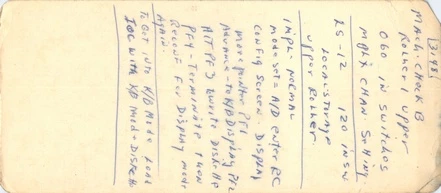 3148
Mach. Check B
Roller 1 upper
060 in switches
MPLX CHAN Setting
LS-12 120 in SW
Local storage
upper Roller
IMPL-NORMAL
mode set = A/D enter RC
Config Screen Display
move pointer PF1
Advance to K/D Display PF2
ALT PF3 Write to Diskette
PF4 - Terminate then
ReConf For Display mode
Again.
To Get into K/D Mode Load
IOC with K/D mode